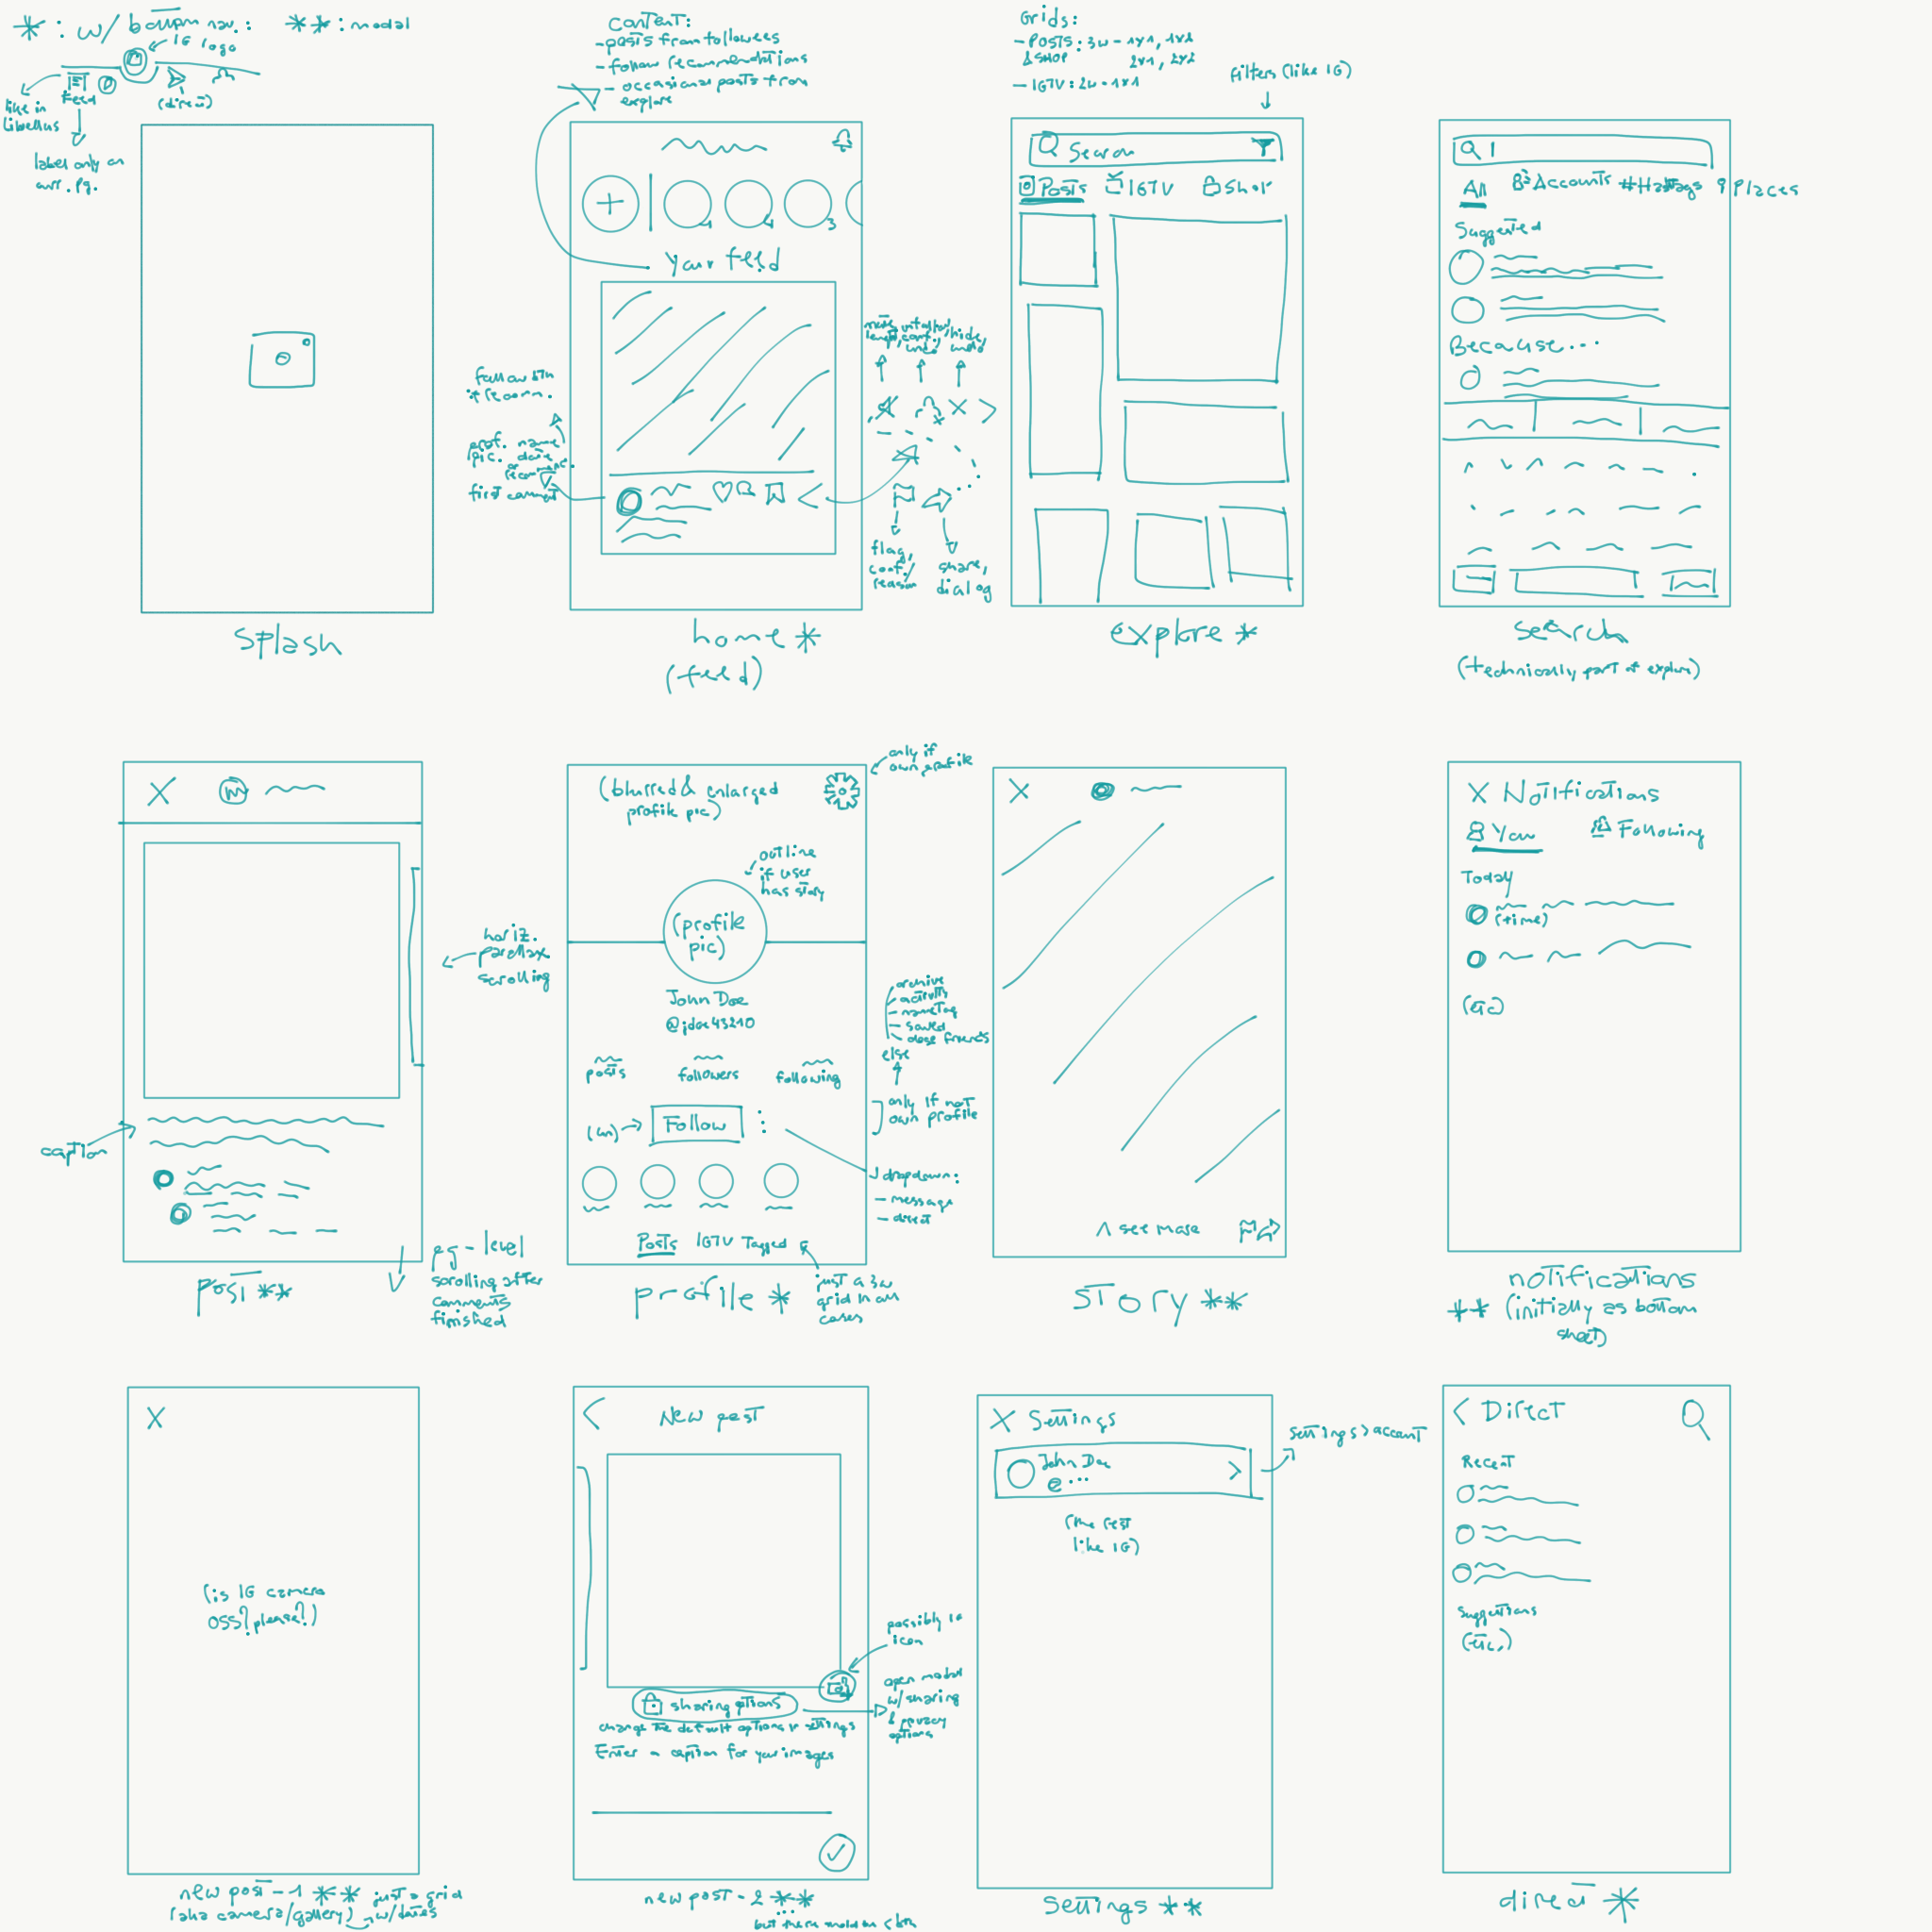 * : w/ bottom nav.:
** : modal
IG logo
like in
Libellus
Feed
(direct)
label only on
curr. pg.
splash
Content:
- posts from followees
- follow recommendations
- occasional posts from
explore
your feed
1
4
3
follow btn
if recom.
prof.
pic.
name
date
first comment
hide,
undo
flag,
conf./
reason
share,
dialog
home *
(feed)
Grids:
- Posts: 3w - 1x1, 1x2
& SHOP 2x1, 2x2
- IGTV: 2w - 1x1
filters (like IG)
Search
Posts IGTV Shop
explore *
All Accounts #Hashtags Places
Suggested
Because...
search
(technically part of explore)
caption
horiz.
parallax
scrolling
post **
pg-level
scrolling after
comments
finished
(blurred & enlarged
profile pic)
only if
own profile
outline
if user
has story
(profile
pic)
John Doe
@jdoe43210
posts followers following
(un) Follow
archive
- activity
- nametag
- saved
- close friends
else
only if not
own profile
dropdown:
- message
- direct
Posts IGTV Tagged
profile *
just a 3w
grid in all
cases
see more
STORY **
X Notifications
You Following
Today
(time)
(etc)
notifications
** (initially as bottom
sheet)
X
(is IG camera
OSS? please?)
new post-1 **
(aka camera/gallery)
just a grid
w/dates
New post
possibly IG
icon
sharing options
open modal
w/sharing
& privacy
options
change the default options in settings
Enter a caption for your images
new post - 2 **
...
X Settings
John Doe
@...
settings > account
(the rest
like IG)
settings **
Direct
Recent
Suggestions
(etc.)
direct *